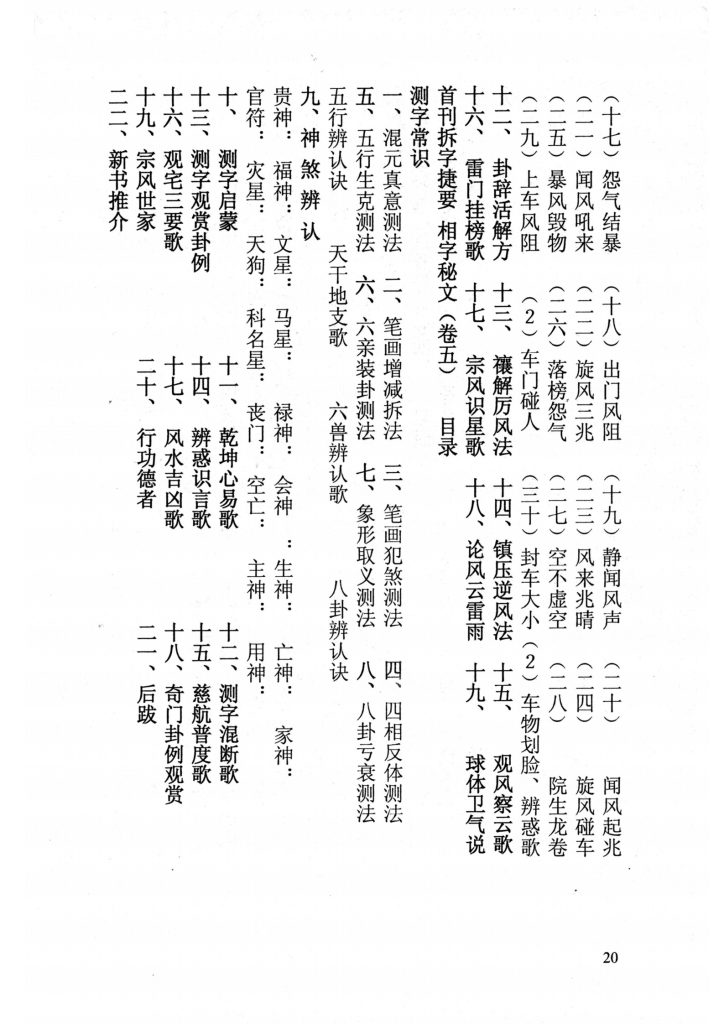 （十七）怨气结暴　（十八）出门风阻　（十九）静闻风声　（二十）　闻风起兆
（二一）闻风吼来　（二二）旋风三兆　（二三）风来兆晴　（二四）　旋风碰车
（二五）暴风毁物　（二六）落榜怨气　（二七）空不虚空　（二八）　院生龙卷
（二九）上车风阻　（2）车门碰人　（三十）封车大小（2）车物划脸、辨惑歌
十二、卦辞活解方　十三、禳解厉风法　十四、镇压逆风法　十五、观风察云歌
十六、雷门挂榜歌　十七、宗风识星歌　十八、论风云雷雨　十九、球体卫气说
首刊拆字捷要　相字秘文（卷五）　目录
测字常识
一、混元真意测法　二、笔画增减拆法　三、笔画犯煞测法　四、四相反体测法
五、五行生克测法　六、六亲装卦测法　七、象形取义测法　八、八卦亏衰测法
五行辨认诀　天干地支歌　六兽辨认歌　八卦辨认诀
九、神煞辨认
贵神：福神：文星：马星：禄神：会神：生神：亡神：家神：
官符：灾星：天狗：科名星：丧门：空亡：主神：用神：
十、测字启蒙　十一、乾坤心易歌　十二、测字混断歌
十三、测字观赏卦例　十四、辨惑识言歌　十五、慈航普度歌
十六、观宅三要歌　十七、风水吉凶歌　十八、奇门卦例观赏
十九、宗风世家　二十、行功德者　二一、后跋
二二、新书推介
20